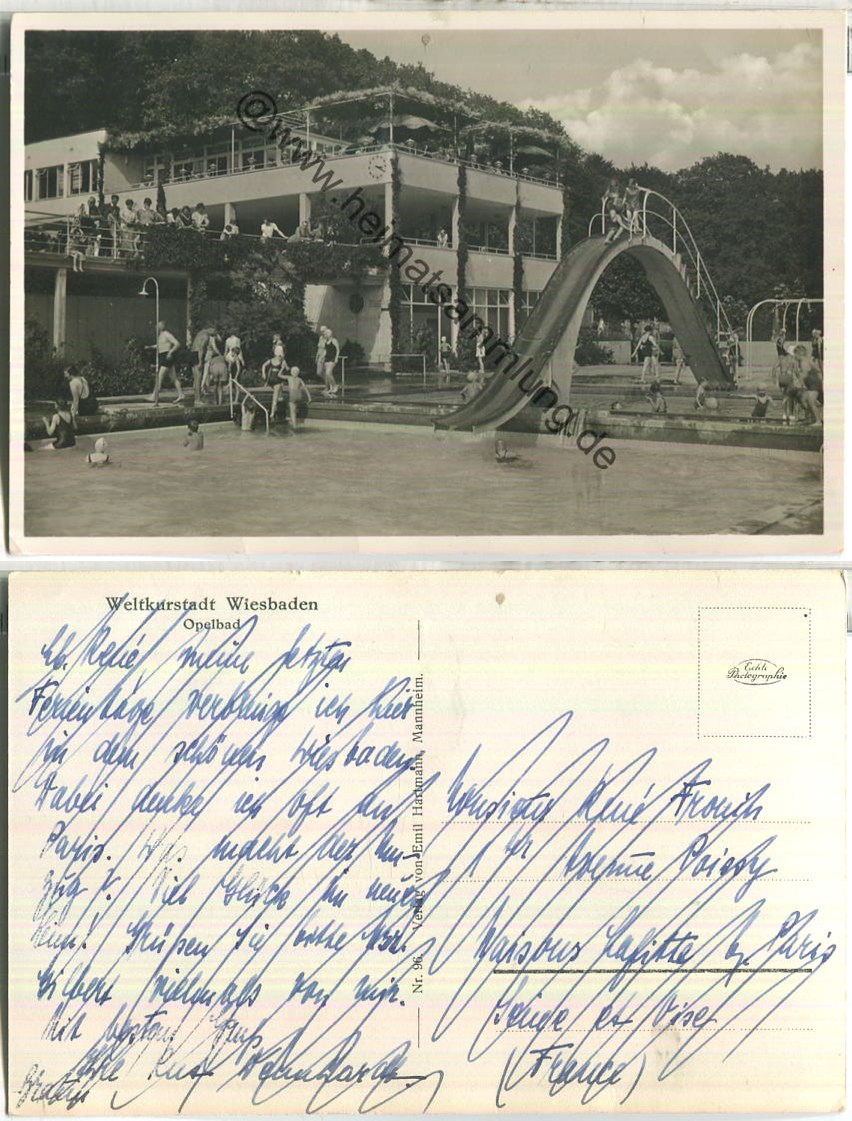 ©www.heimatsammlung.de
Weltkurstadt Wiesbaden
Opelbad
Lb. René, meine letzten
Ferientage verbringe ich hier
in dem schönen Wiesbaden.
Dabei denke ich oft an
Paris. Was macht der Um-
zug? Viel Glück im neuen
Heim! Grüßen Sie bitte
Gilbert vielmals von mir.
Mit bestem Gruß
Nr. 96 Verlag von Emil Hartmann, Mannheim.
Echte
Photographie
Monsieur René
Avenue
Maisons Lafitte b. Paris
Seine et Oise
(France)